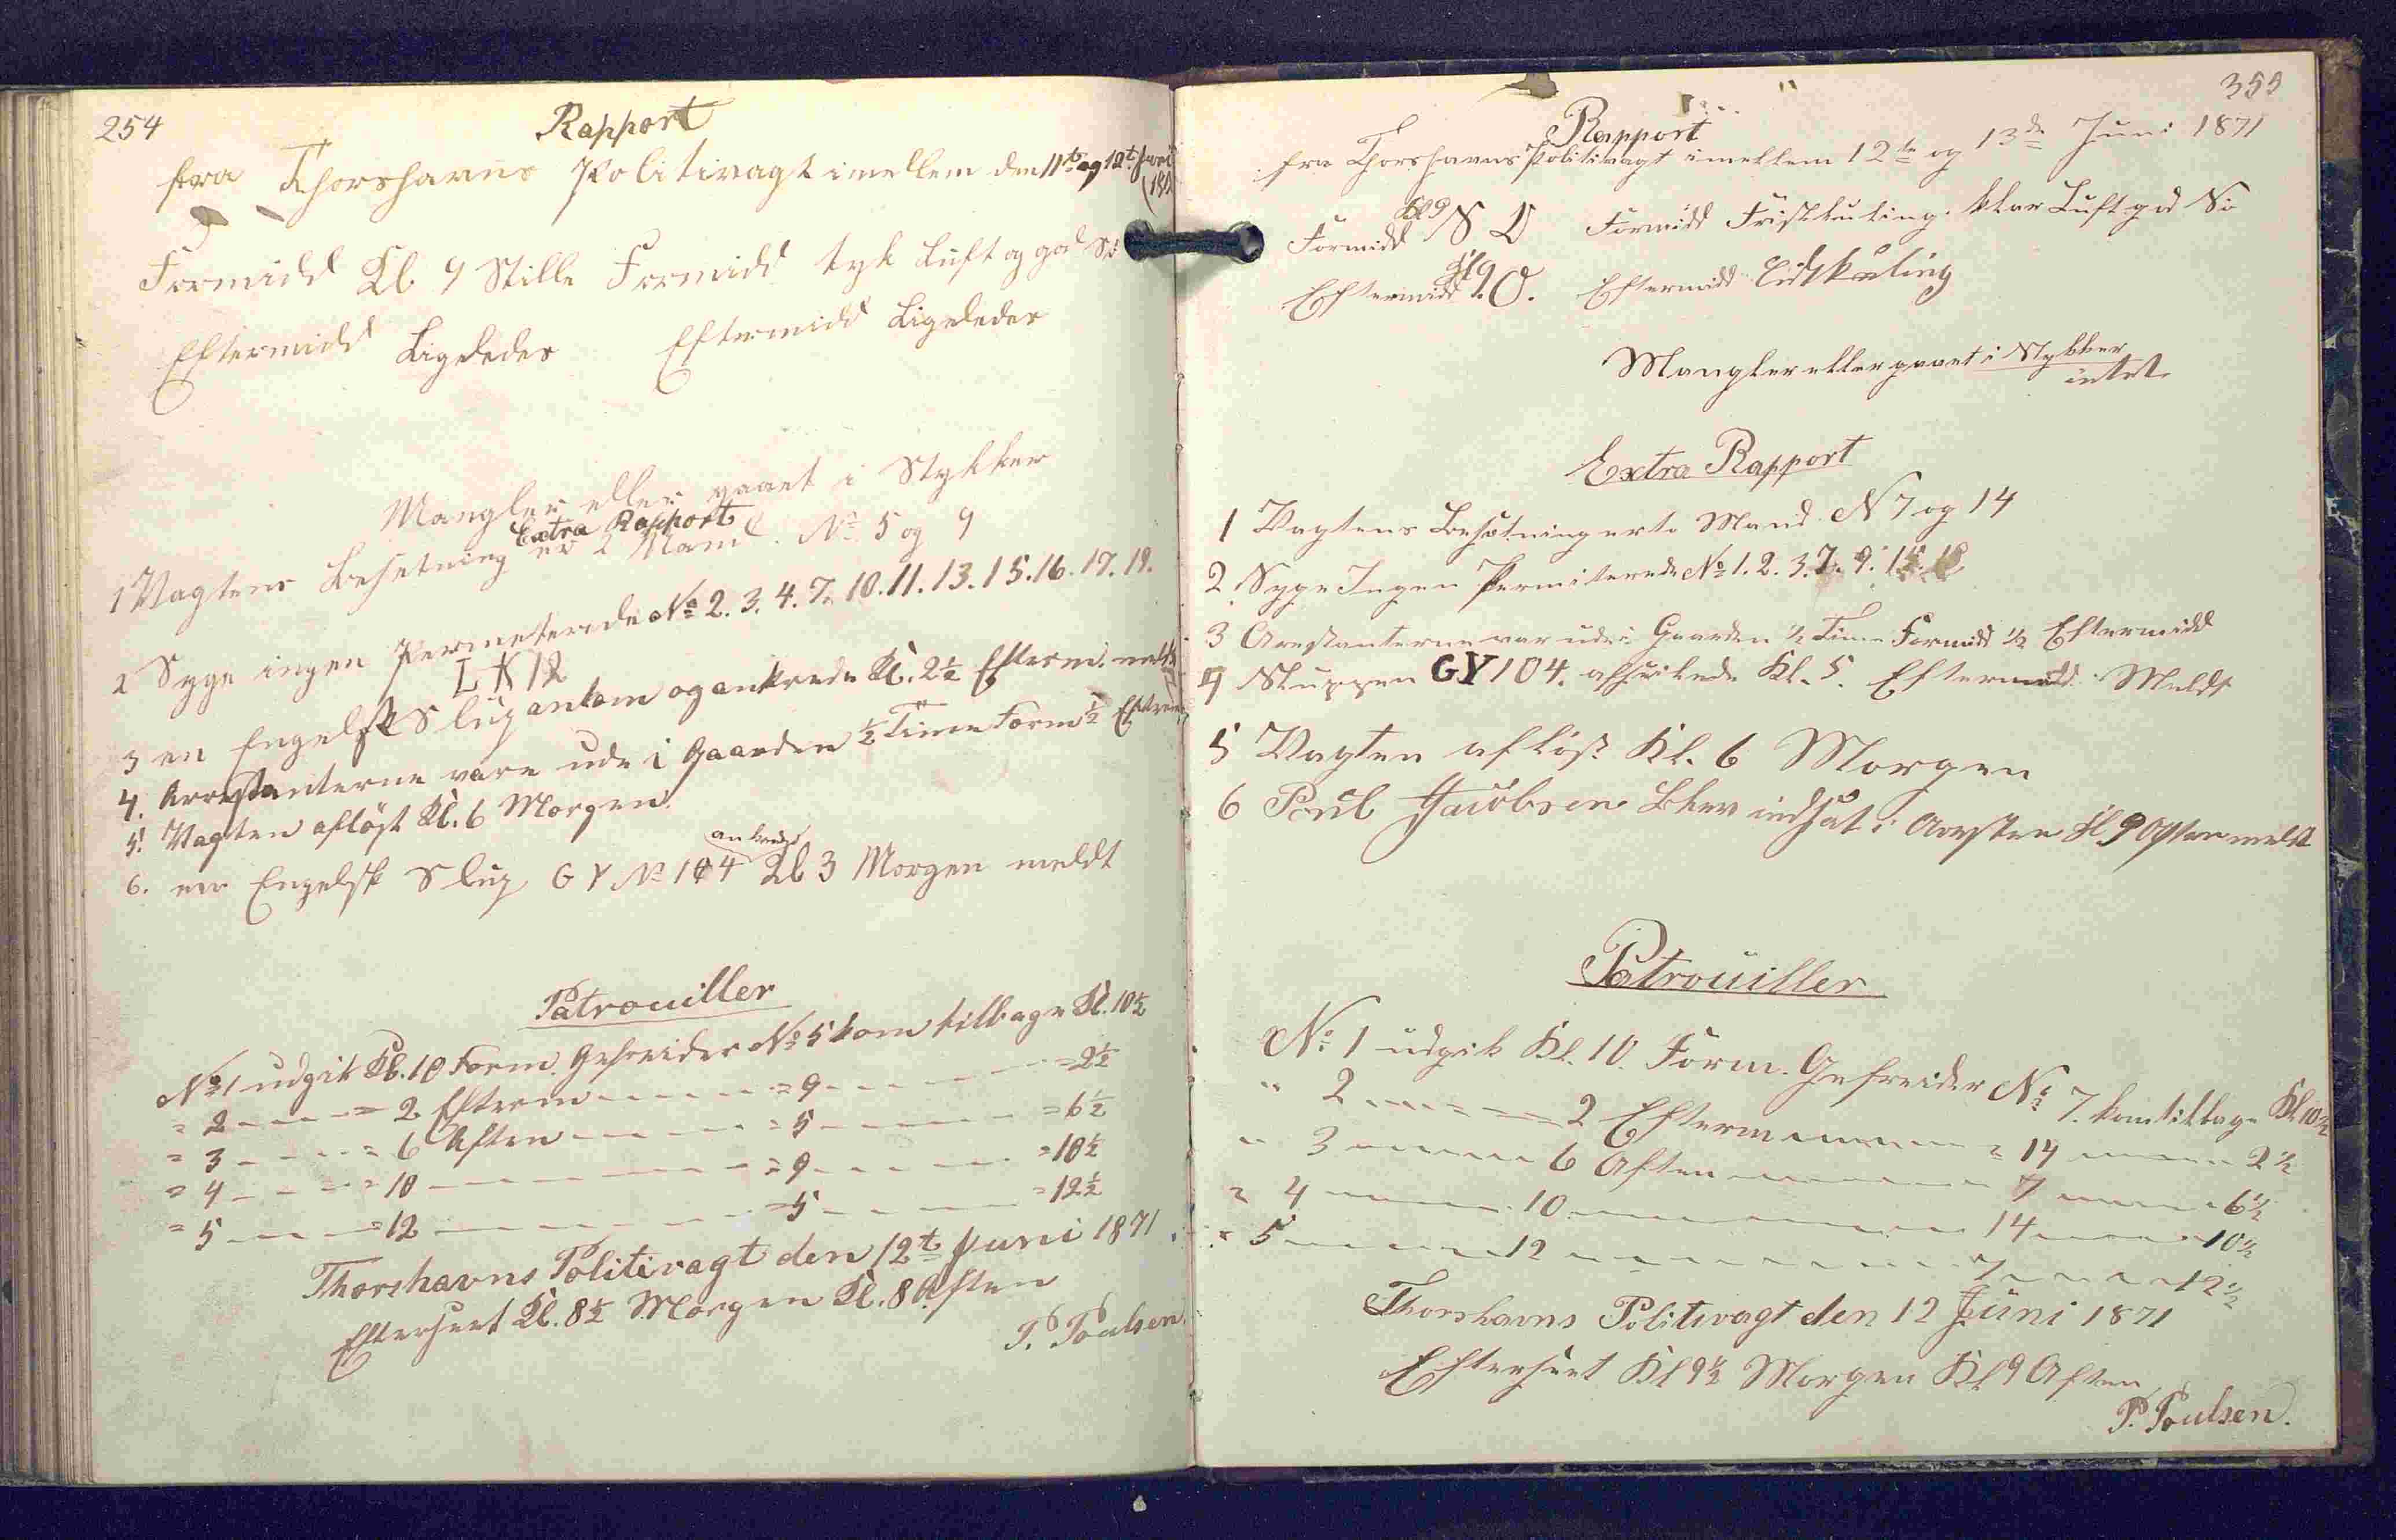 254
Rapport
fra Thorshavns Politivagt imellem den 11te og 12t Juni
Formidd Kl. 9 Stille Formidd tyk Luft og god Sö
Eftermidd Ligeledes Eftermidd Ligeledes
Mangler eller gaaet i Stykker
Extra Rapport
1 Vagtens Besetning er 2 Mand. No 5 og 9
2 Syge ingen Permeterede No 2. 3. 4. 7. 10. 11. 13. 15. 16. 17. 19.
LK 12
3 en Engelsk Slup ankom og ankrede Kl. 2½ Efterm. meldt
4. Arrestanterne vare ude i Gaarden ½ Time Form ½ Efterm
5. Vagten aflöst Kl. 6 Morgen.
ankrede
6. en Engelsk Slup GY No 104 Kl 3 Morgen meldt
Patrouiller
No 1 udgik Kl. 10 Form. Gefreider No 5 kom tilbage Kl. 10½
= 2 - - - = 2 Efterm - - - = 9 - - - = 2½
= 3 - - - = 6 Aften - - - = 5 - - - = 6½
= 4 - - - = 10 - - - = 9 - - - = 10½
= 5 - - - = 12 - - - = 5 - - - = 12½
Thorshavns Politivagt den 12t Juni 1871
Efterseet Kl. 8½ Morgen Kl. 8 Aften
P. Poulsen
355
Rapport
fra Thorshavns Politivagt imellem 12te og 13de Juni 1871
Formidd Kl 9 S O Formidd Friskkuling. klar Luft god Sö
Eftermidd Kl 9. O. Eftermidd Lidtkuling
Mangler eller gaaet i Stykker
intet.
Extra Rapport
1 Vagtens Besætning er to Mand N 7 og 14
2 Syge Ingen Permiterede No 1. 2. 3. 7. 9.
3 Arestanterne var ude i Gaarden ½ Time Formidd ½ Eftermidd
4 Sluppen GY 104. afseilede Kl. 5. Eftermidd. Meldt
5 Vagten aflöst Kl. 6 Morgen
6 Poul Jacobsen blev indsat i Aresten Kl 9 Aften meldt
Patrouiller
No 1 udgik Kl. 10. Form. Gefreider No 7. kom tilbage Kl 10½
" 2 - - - 2 Efterm - - - = 14 - - - 2½
" 3 - - - 6 Aften - - - 7 - - - 6½
= 4 - - - 10 - - - 14 - - - 10½
= 5 - - - 12 - - - 7 - - - 12½
Thorshavns Politivagt den 12 Juni 1871
Efterseet Kl 9½ Morgen Kl 9 Aften
P. Poulsen.